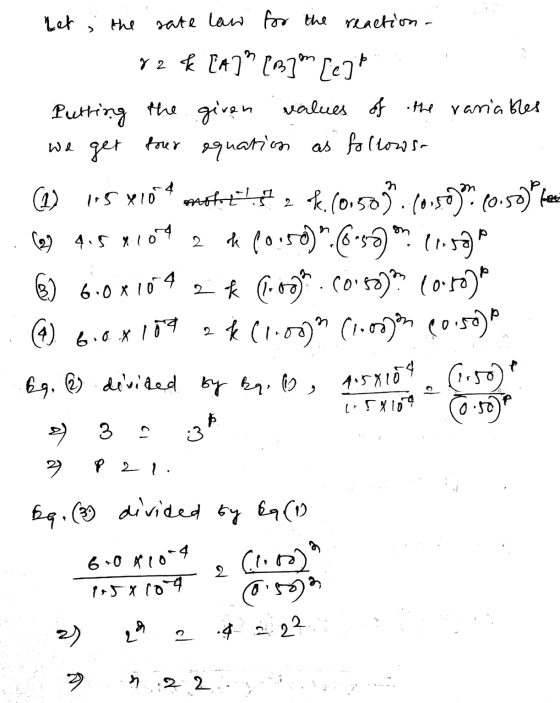 Let, the rate law for the reaction -
r = k [A]^n [B]^m [C]^p
Putting the given values of the variables
we get four equation as follows-
(1) 1.5 x 10^-4 = k. (0.50)^n. (0.50)^m. (0.50)^p
(2) 4.5 x 10^-4 = k (0.50)^n. (0.50)^m. (1.50)^p
(3) 6.0 x 10^-4 = k (1.00)^n. (0.50)^m (0.50)^p
(4) 6.0 x 10^-4 = k (1.00)^n (1.00)^m (0.50)^p
Eq. (2) divided by Eq. (1), 4.5 x 10^-4 / 1.5 x 10^-4 = (1.50)^p / (0.50)^p
=> 3 = 3^p
=> P = 1.
Eq. (3) divided by Eq (1)
6.0 x 10^-4 / 1.5 x 10^-4 = (1.00)^n / (0.50)^n
=> 2^n = 4 = 2^2
=> n = 2